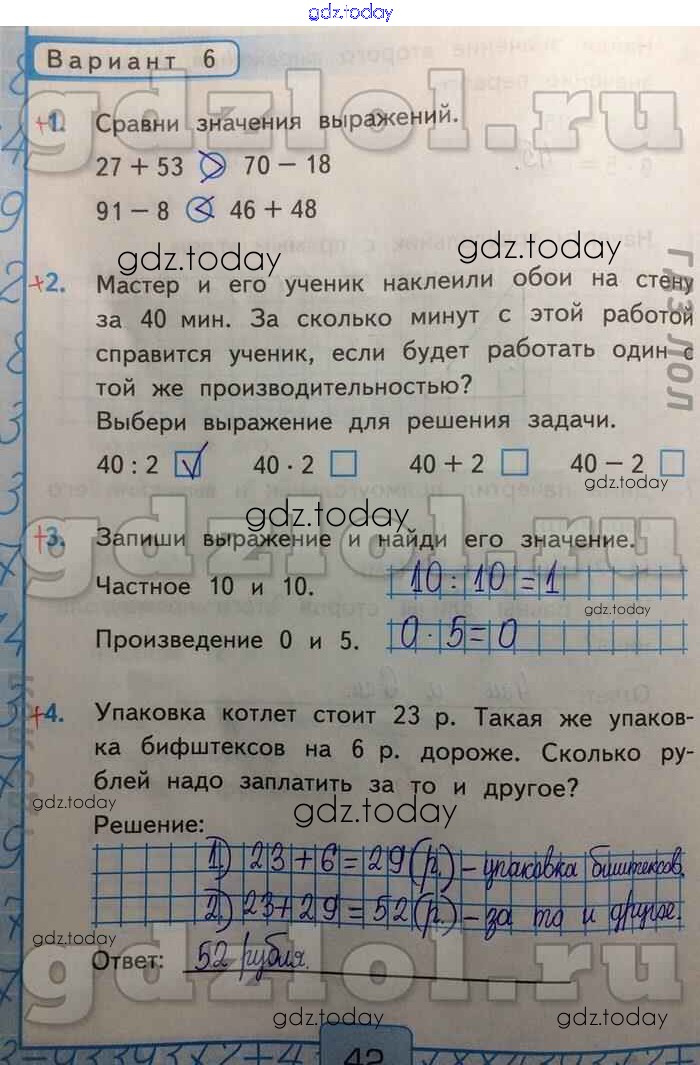 gdz.today
Вариант 6
+1. Сравни значения выражений.
27 + 53 > 70 − 18
91 − 8 < 46 + 48
gdz.today gdz.today
+2. Мастер и его ученик наклеили обои на стену
за 40 мин. За сколько минут с этой работой
справится ученик, если будет работать один с
той же производительностью?
Выбери выражение для решения задачи.
40 : 2 ☑ 40 · 2 ☐ 40 + 2 ☐ 40 − 2 ☐
gdz.today
gdz.today
+3. Запиши выражение и найди его значение.
Частное 10 и 10. 10 : 10 = 1
gdz.today
Произведение 0 и 5. 0 · 5 = 0
+4. Упаковка котлет стоит 23 р. Такая же упаков-
ка бифштексов на 6 р. дороже. Сколько ру-
блей надо заплатить за то и другое?
gdz.today gdz.today gdz.today
Решение:
1) 23 + 6 = 29 (р.) – упаковка биштексов.
2) 23 + 29 = 52 (р.) – за то и другое.
gdz.today gdz.today
Ответ: 52 рубля.
gdz.today gdz.today
42
gdzlol.ru
gdzlol.ru
gdzlol.ru
ГДЗ ЛОЛ